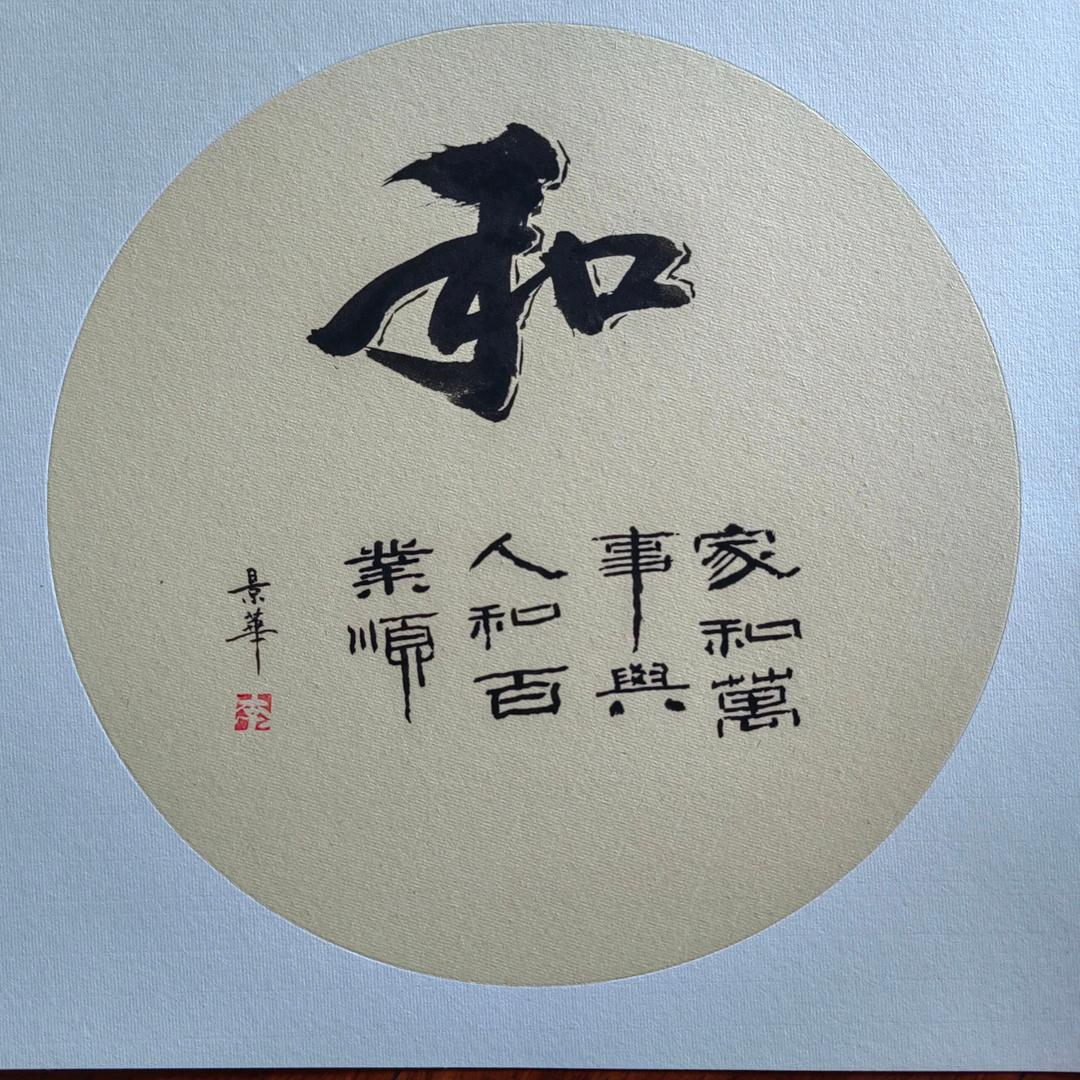 和
家和萬
事興
人和百
業順
景華